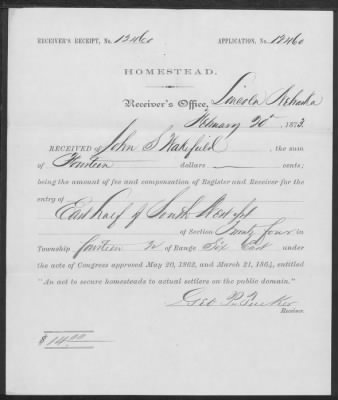 RECEIVER'S RECEIPT, No. 12460 APPLICATION, No. 12460
HOMESTEAD.
Receiver's Office, Lincoln Nebraska
February 20" 1873.
RECEIVED of John S Wakefield, the sum
of Fourteen dollars cents;
being the amount of fee and compensation of Register and Receiver for the
entry of
East half of South West qr
of Section Twenty four in
Township fourteen N of Range Six East under
the acts of Congress approved May 20, 1862, and March 21, 1864, entitled
"An act to secure homesteads to actual settlers on the public domain."
Geo P. Tucker
Receiver.
$ 14.00